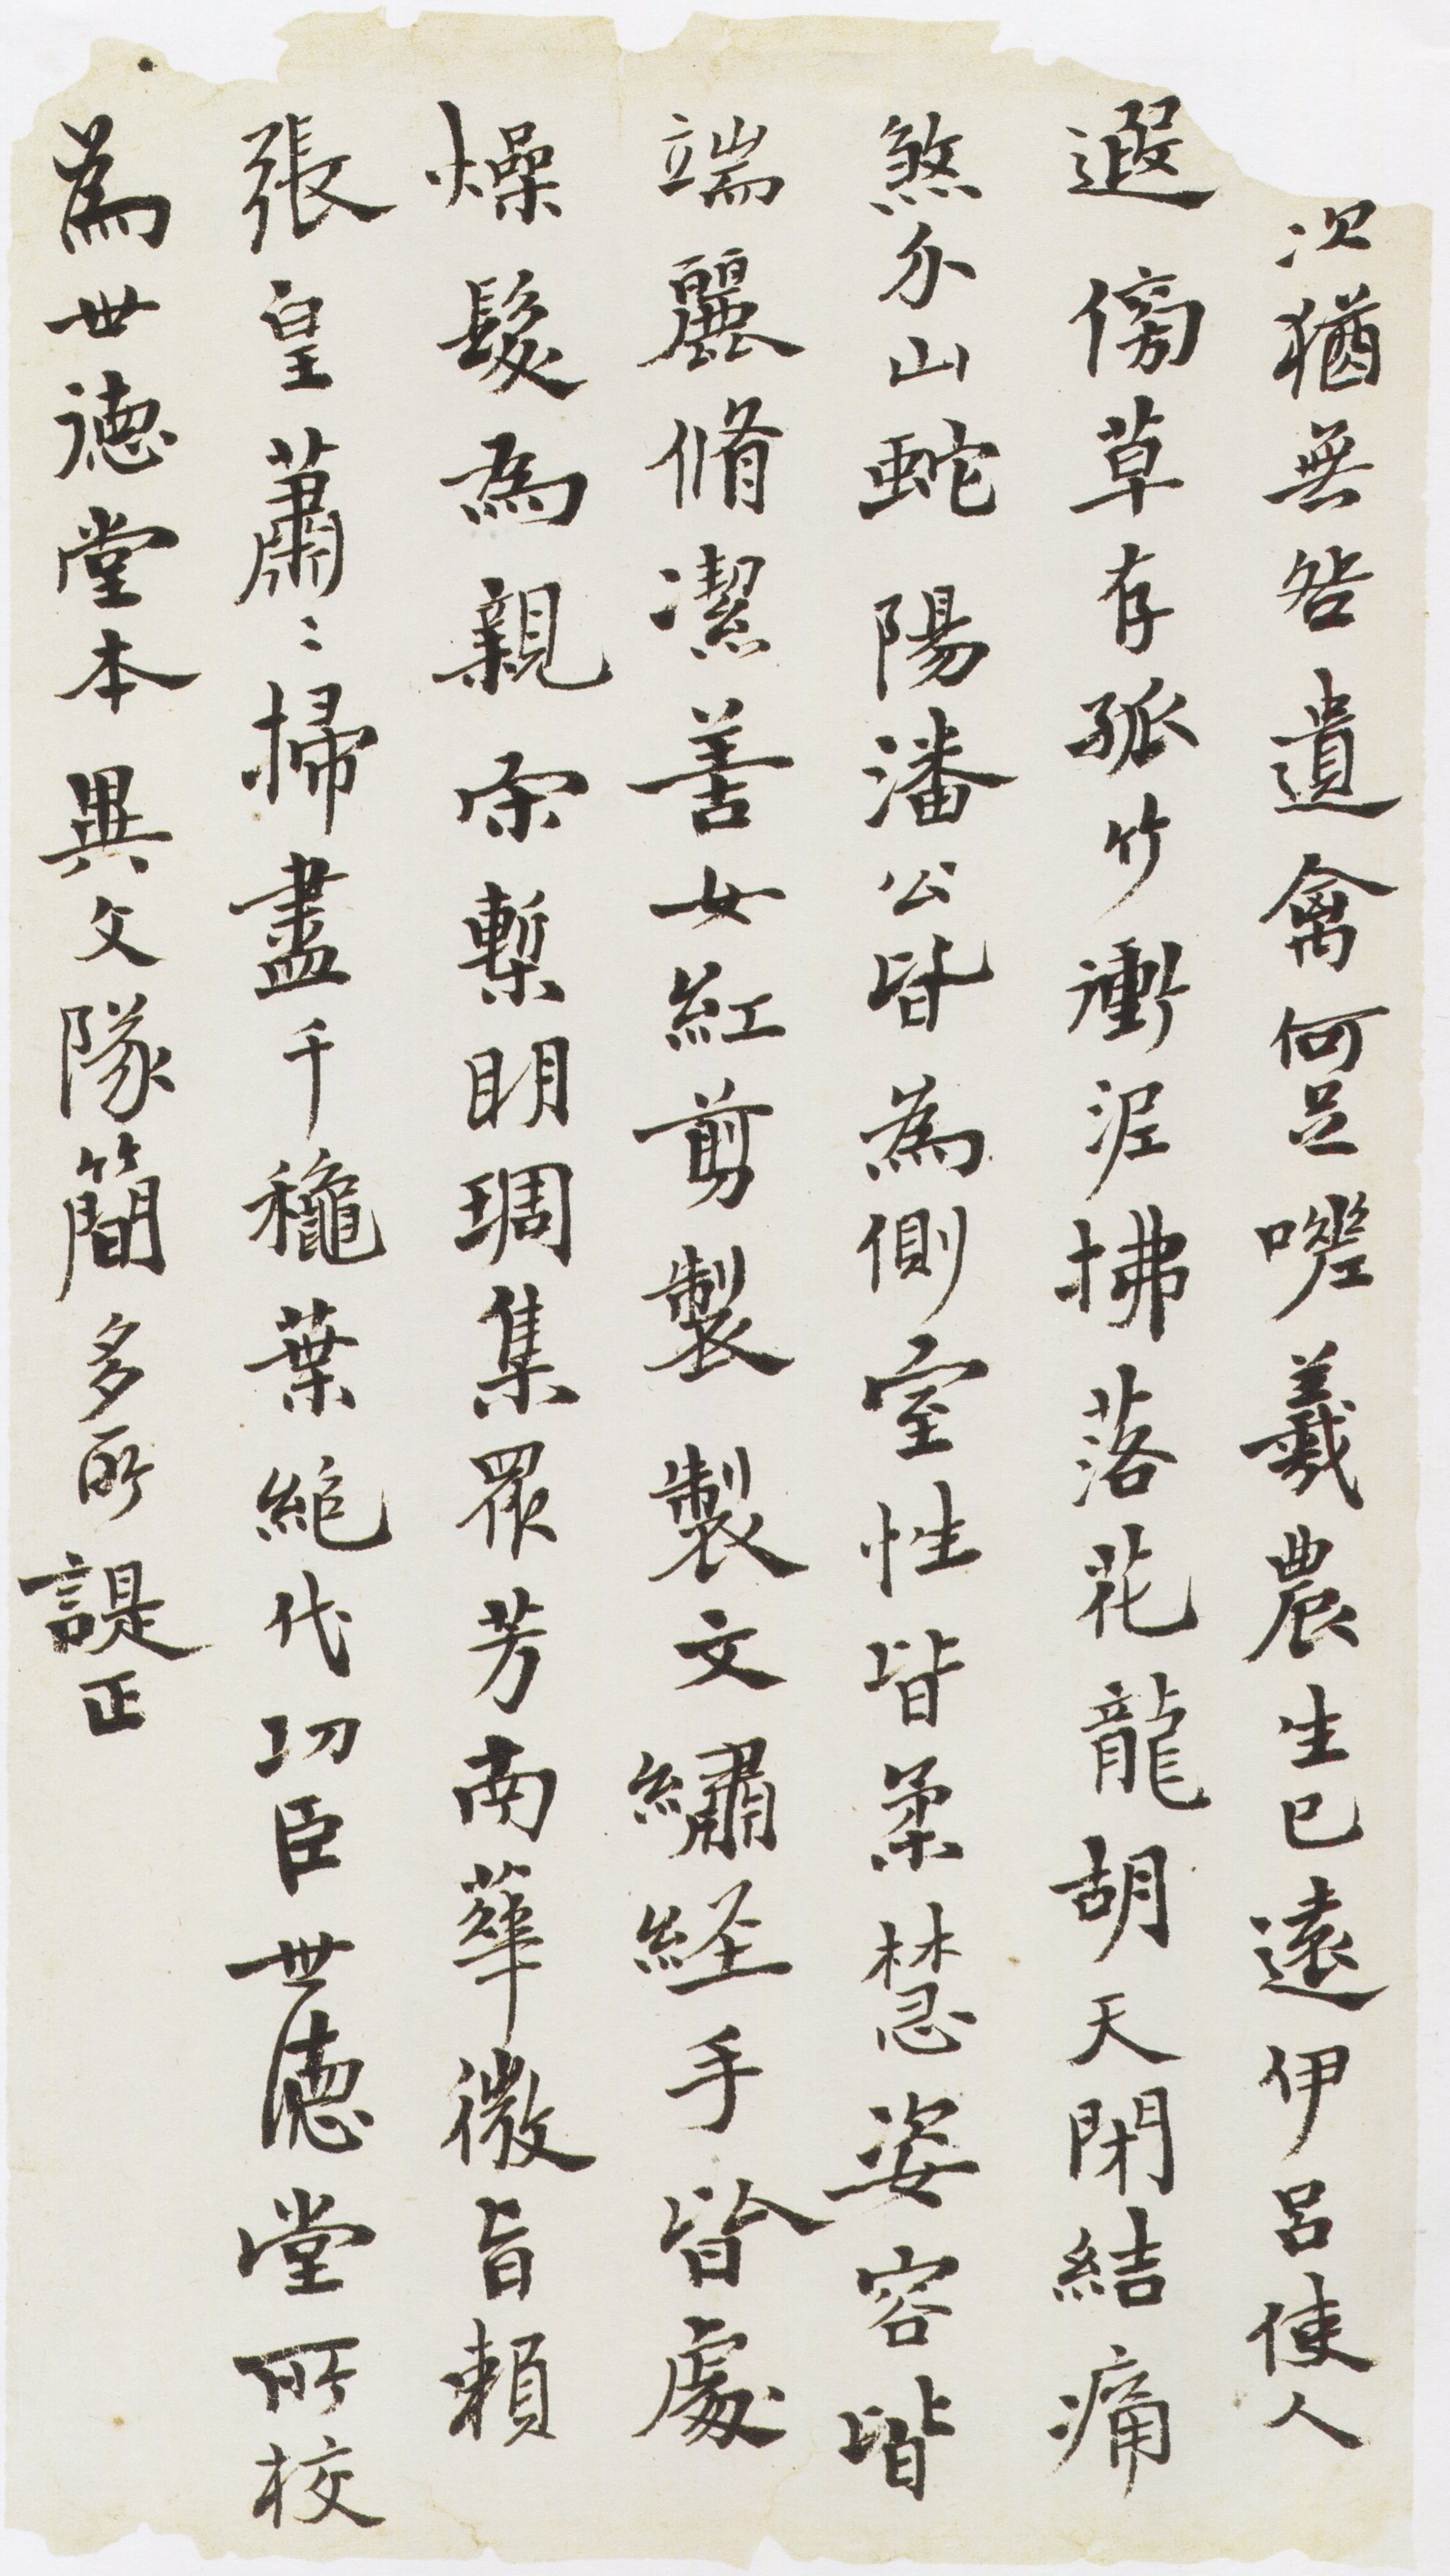 次猶無咎遺禽何足嘥羲農生已遠伊呂使人
遐傍草存孤竹衝泥拂落花龍胡天閉結痛
煞尒山蛇陽潘公皆為側室性皆柔慧姿容皆
端麗脩潔善女紅剪製製文繡経手皆處
燥髮為親柰槧明琱集眾芳南華微旨賴
張皇蕭〻掃盡千龝葉絕代功臣世德堂所校
為世德堂本異文隊簡多所諟正